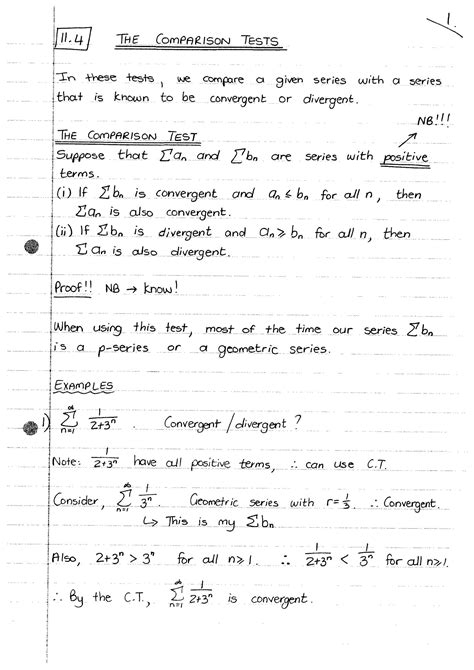 1.
11.4 THE COMPARISON TESTS
In these tests, we compare a given series with a series
that is known to be convergent or divergent.
NB!!!
THE COMPARISON TEST
Suppose that Σaₙ and Σbₙ are series with positive
terms.
(i) If Σbₙ is convergent and aₙ ≤ bₙ for all n, then
Σaₙ is also convergent.
(ii) If Σbₙ is divergent and aₙ ≥ bₙ for all n, then
Σaₙ is also divergent.
Proof!! NB → know!
When using this test, most of the time our series Σbₙ
is a p-series or a geometric series.
EXAMPLES
1) ∞Σn=1 1/(2+3ⁿ) . Convergent/divergent ?
Note: 1/(2+3ⁿ) have all positive terms, ∴ can use C.T.
Consider, ∞Σn=1 1/3ⁿ. Geometric series with r=1/3. ∴ Convergent.
↳ This is my Σbₙ
Also, 2+3ⁿ > 3ⁿ for all n≥1. ∴ 1/(2+3ⁿ) < 1/3ⁿ for all n≥1.
∴ By the C.T., ∞Σn=1 1/(2+3ⁿ) is convergent.